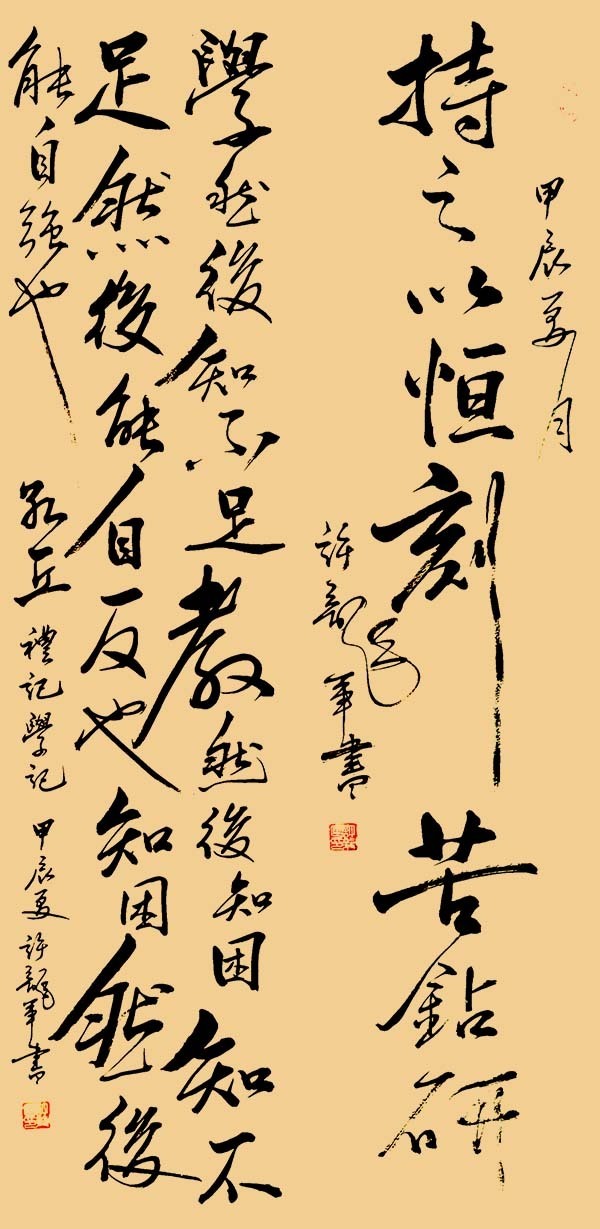 甲辰夏月
持之以恒刻苦鉆研
許龍軍書
學然後知不足教然後知困知不
足然後能自反也知困然後
能自強也 孔丘 禮記學記 甲辰夏許龍軍書